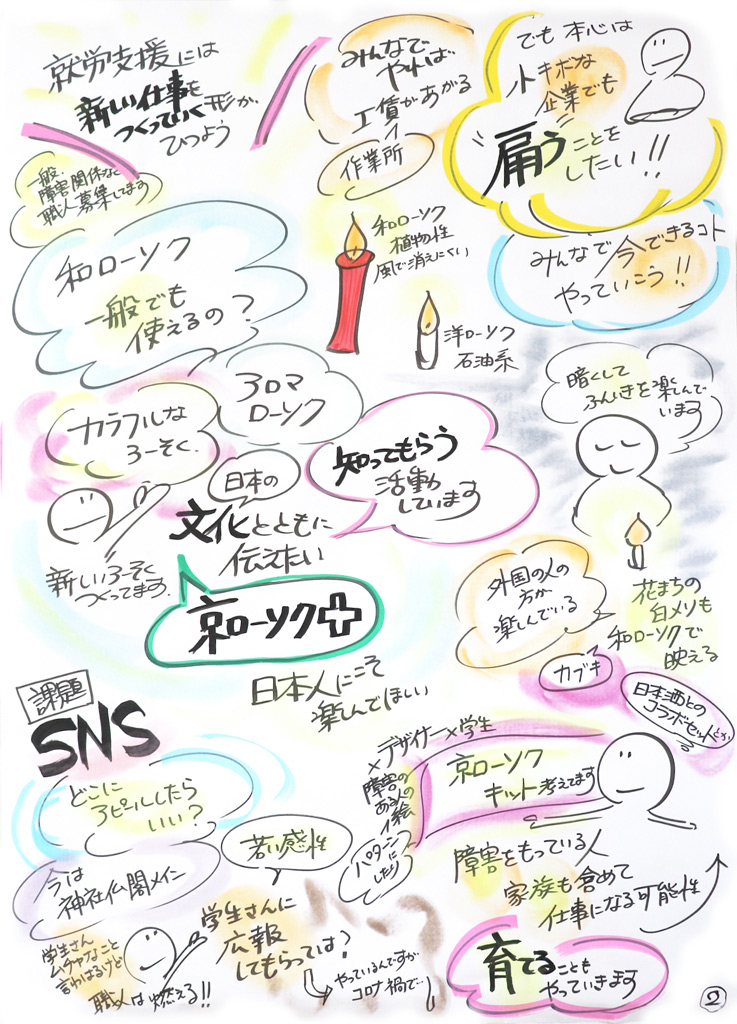 就労支援には
新しい仕事を
つくっていく形が
ひつよう
みんなで
やれば
工賃があがる
作業所
でも 本心は
トキボな
企業でも
雇うことを
したい!!
一般、
障害関係なく
職人募集してます
和ローソク
一般でも
使えるの?
和ローソク
植物性
風で消えにくい
洋ローソク
石油系
みんなで今できるコト
やっていこう!!
暗くして
ふんいきを楽しんで
います
アロマ
ローソク
カラフルな
ろーそく
新しいろーそく
つくってます
知ってもらう
活動
しています
日本の
文化とともに
伝えたい
京ローソク+
日本人にこそ
楽しんでほしい
外国の人の
方が
楽しんでいる
花まちの
白メリも
和ローソクで
映える
カブキ
日本酒との
コラボセットとか
課題
SNS
どこに
アピールしたら
いい?
今は
神社仏閣メイン
若い感性
学生さんに
広報
してもらっては?
やっているんですが
コロナ禍で…
学生さん
ムチャなこと
言わはるけど
職人は燃える!!
×デザイナー×学生
×障害の
ある人の
絵
パターンに
したり
京ローソク
キット考えてます
障害をもっている人
家族も含めて
仕事になる可能性
育てることも
やっていきます
2